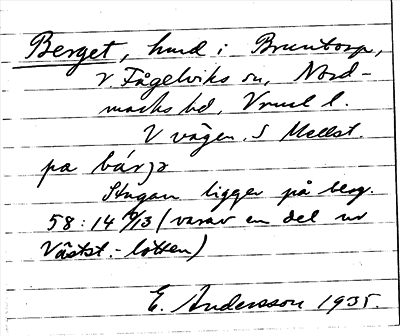 Berget, hmd i Bruntorp,
V. Fågelviks sn, Nord-
marks hd, Vrml l.
V vägen. S Mellst.
pa bárjə
Stugan ligger på berg.
58:14 /13 (varav en del ur
Västst.-lotten)
E. Andersson 1935.